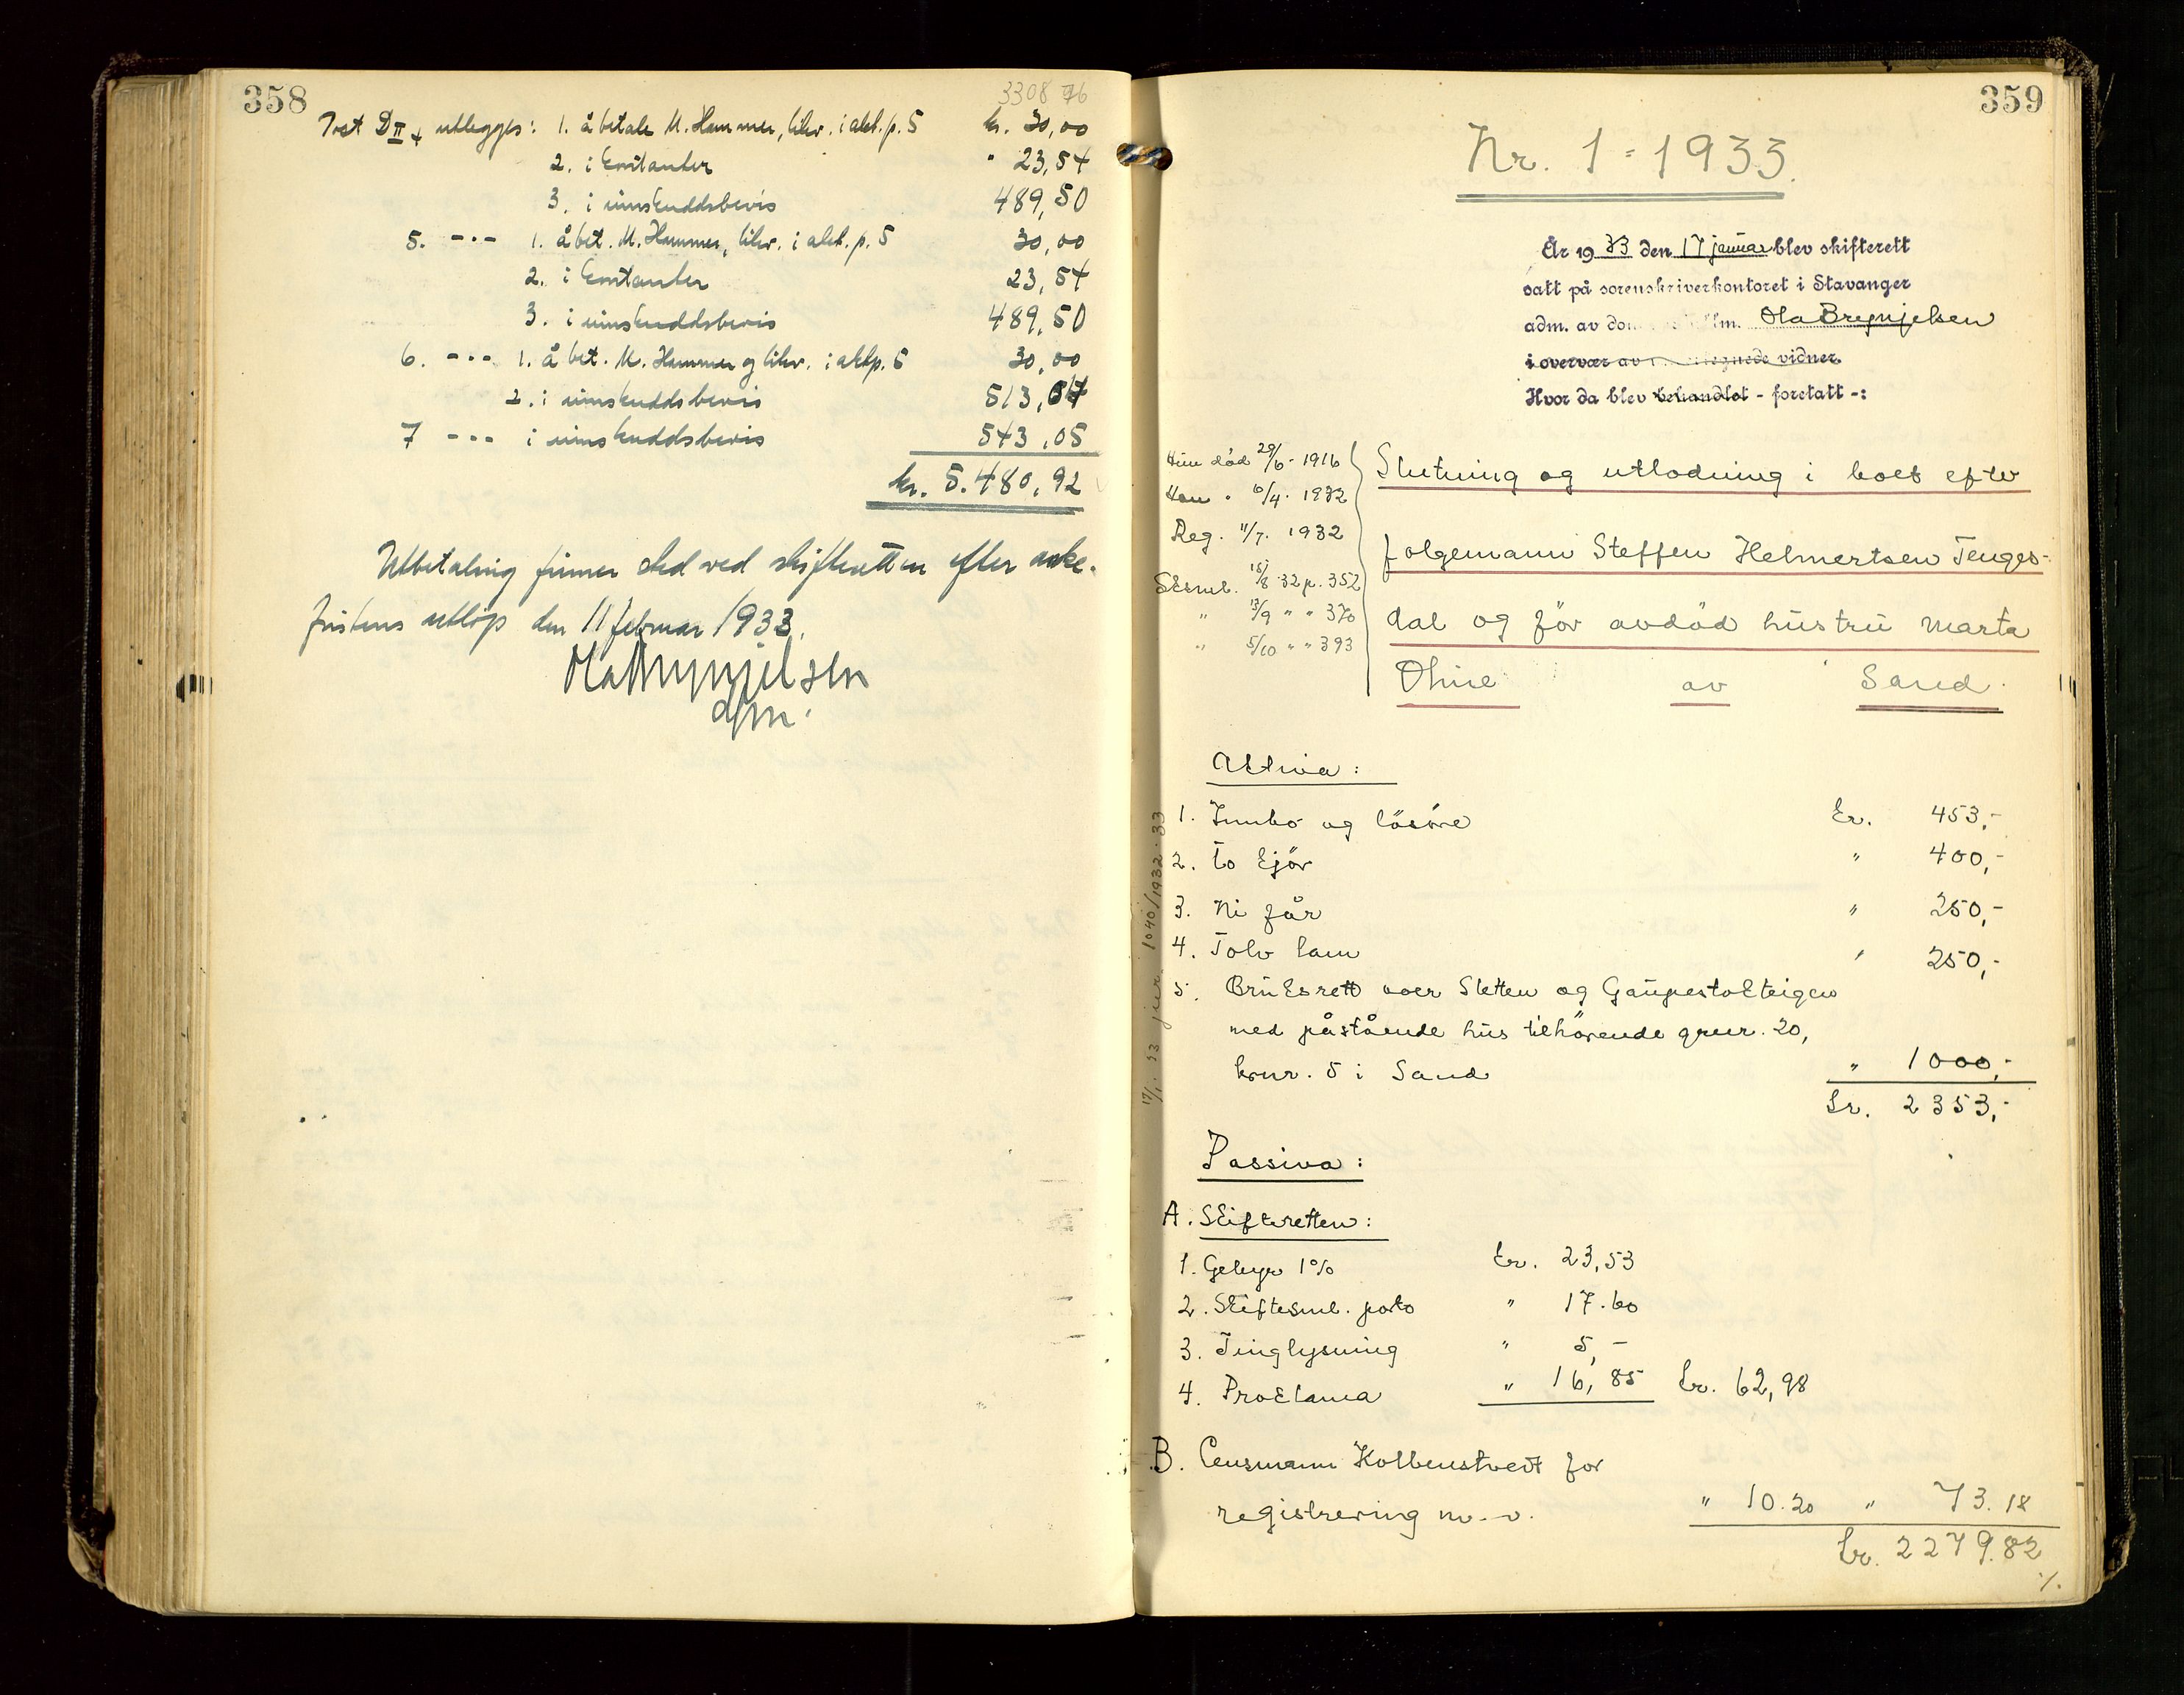 358
3308 76
Post D II 4 utlegges: 1. å betale M. Hammer, tilsv. i akt. p. 5 kr. 30,00
2. i kontanter " 23,54
3. i innskuddsbevis 489,50
5. -"- 1. å bet. M. Hammer, tilsv. i akt. p. 5 30,00
2. i kontanter 23,54
3. i innskuddsbevis 489,50
6. -"- 1. å bet. M. Hammer og tilsv. i akt p. 5 30,00
2. i innskuddsbevis 513,04
7 -"- i innskuddsbevis 543,05
kr. 5.480,92
Utbetaling finner sted ved skifteretten efter anke-
fristens utløp den 11 februar 1933.
Ola Brynjelsen
dfm.
359
Nr. 1 = 1933.
År 1933 den 17 januar blev skifterett
satt på sorenskriverkontoret i Stavanger
adm. av dom fllm. Ola Brynjelsen
i overvær av undertegnede vidner.
Hvor da blev behandlet - foretatt -:
Hun død 29/6 - 1916
Han " 10/4 - 1932
Reg. 11/7. 1932
Sksml. 15/8 32 p. 352
" 13/9 " " 370
" 5/10 " " 393
Slutning og utlodning i boet efter
følgemann Steffen Helmertsen Tenges-
dal og før avdød hustru Marta
Ohme av Sand.
17/1 33 jnr 1040/1932-33
Aktiva:
1. Innbo og løsøre kr. 453,-
2. To kjør " 400,-
3. Ni får " 250,-
4. Tolv lam " 250,-
5. Bruksrett over Sletten og Gaupestolteigen
med påstående hus tilhørende gnr. 20,
bnr. 5 i Sand " 1000,-
kr. 2353,-
Passiva:
A. Skifteretten:
1. Gebyr 1% kr. 23,53
2. Skiftesml. porto " 17.60
3. Tinglysning " 5,-
4. Proklama " 16,85 kr. 62,98
B. Lensmann Kolbenstvedt for
registrering m.v. " 10.20 " 73.18
kr. 2279.82
./.